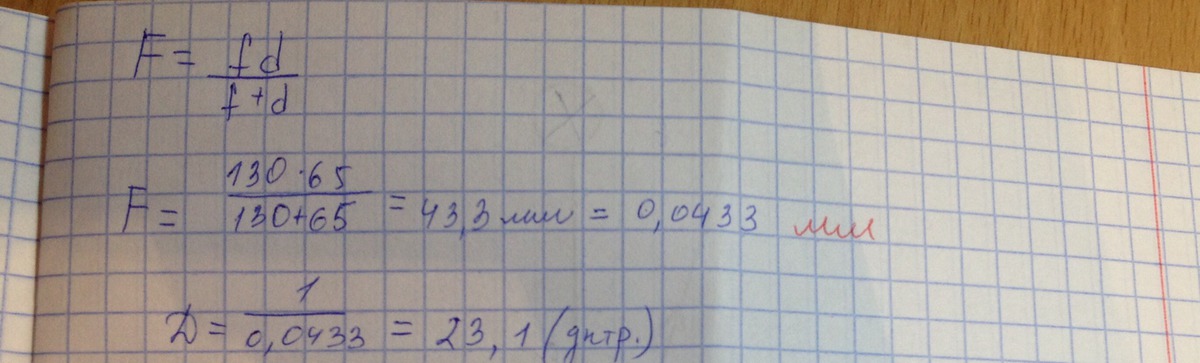 F = fd / f+d
F = 130·65 / 130+65 = 43,3 мм = 0,0433 мм
D = 1 / 0,0433 = 23,1 (дптр.)